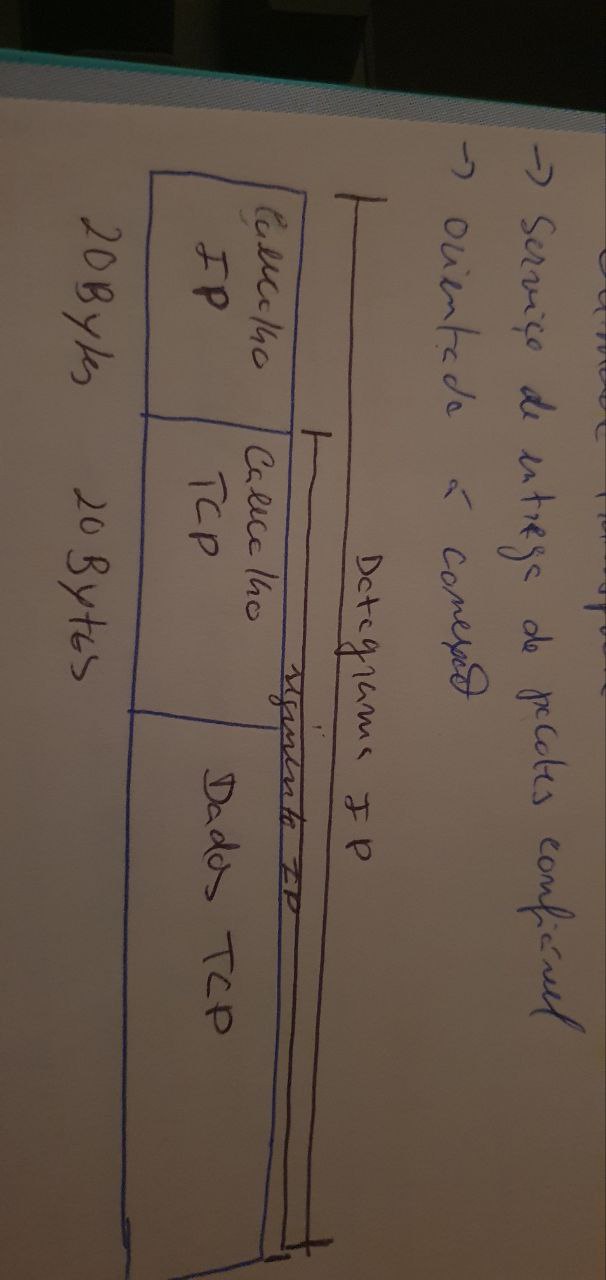 → Serviço de entrega de pacotes confiável
→ Orientado à conexão
Datagrama IP
segmento IP
Cabeçalho
IP
Cabeçalho
TCP
Dados TCP
20Bytes 20Bytes